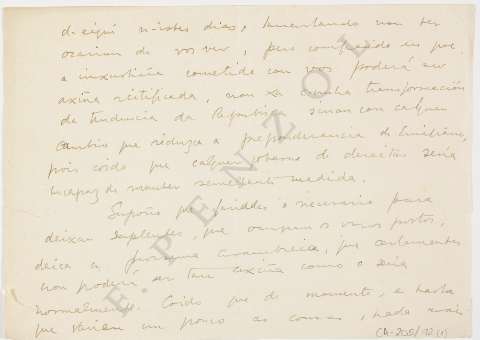 d-eiquí n-istes dias, lamentando non ter
ocasion de vos ver, pero confiando en que
a inxusticia cometida con vos poderá ser
axiña rectificada, non xa counha transformación
de tendencia da Republica sinon con calquer
cambio que reduza a preponderancia de
pois coido que calquer goberno de dereitas sería
incapaz de manter semellante medida.
Supoño que é necesario para
deixar suplentes, que ocupen os vosos postos,
deica a que certamentes
non poderá ser tan axiña como o sería
normalmente. Coido que de momento, e hasta
que veñan un pouco as cousas, nada mais
E. PENZOL